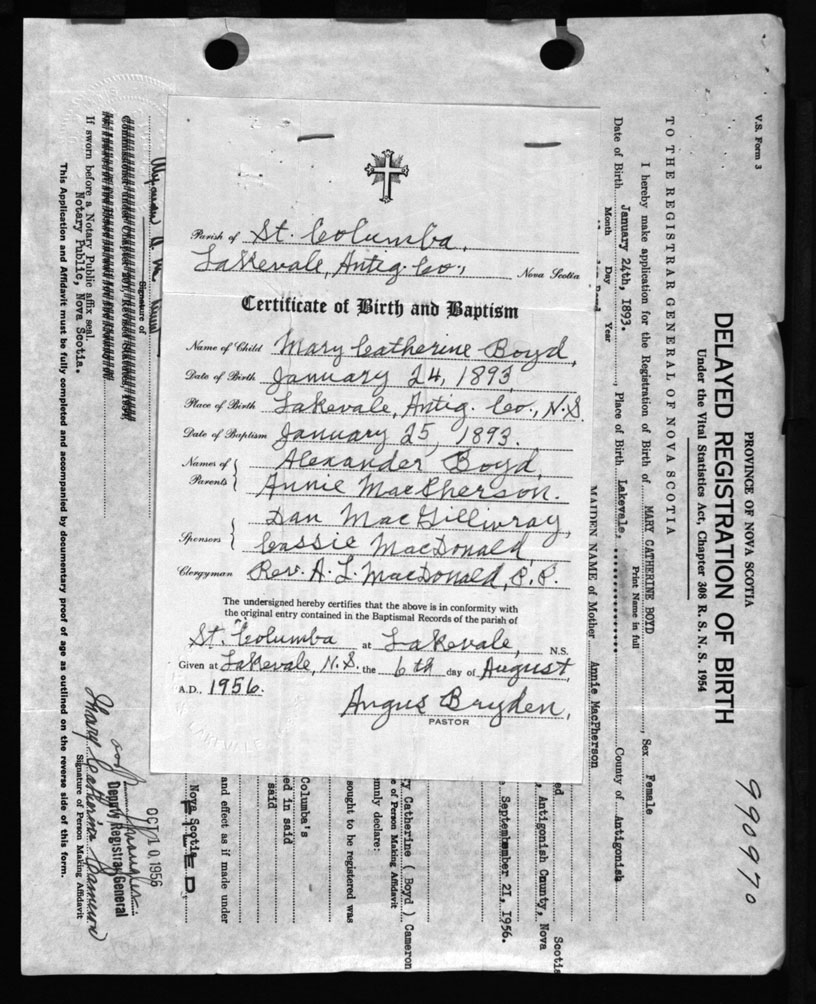 Parish of St. Columba,
Lakevale, Antig. Co., Nova Scotia
Certificate of Birth and Baptism
Name of Child Mary Catherine Boyd,
Date of Birth January 24, 1893,
Place of Birth Lakevale, Antig. Co., N.S.
Date of Baptism January 25, 1893.
Names of Parents { Alexander Boyd,
Annie MacPherson.
Sponsors { Dan MacGillivray,
Cassie MacDonald,
Clergyman Rev. A. L. MacDonald, P.P.
The undersigned hereby certifies that the above is in conformity with
the original entry contained in the Baptismal Records of the parish of
St. Columba at Lakevale, N.S.
Given at Lakevale, N.S. the 6th day of August,
A.D., 1956.
Angus Bryden,
PASTOR
990970
V.S. Form 3
PROVINCE OF NOVA SCOTIA
DELAYED REGISTRATION OF BIRTH
Under the Vital Statistics Act, Chapter 308 R. S. N. S. 1954
TO THE REGISTRAR GENERAL OF NOVA SCOTIA
I hereby make application for the Registration of Birth of MARY CATHERINE BOYD, Sex Female
Print Name in full
Date of Birth January 24th, 1893., Place of Birth Lakevale, County of Antigonish
Month Day Year
MAIDEN NAME of Mother Annie MacPherson
Scotia
, Antigonish County, Nova
September 21, 1956.
ry Catherine ( Boyd ) Cameron
e of Person Making Affidavit
mnly declare:
ought to be registered was
Columba's
ed in said
said
and effect as if made under
Nova Scotia
FILED
Signature of
If sworn before a Notary Public affix seal.
Notary Public, Nova Scotia.
OCT 10 1956
Deputy Registrar General
Mary Catherine Cameron
Signature of Person Making Affidavit
This Application and Affidavit must be fully completed and accompanied by documentary proof of age as outlined on the reverse side of this form.